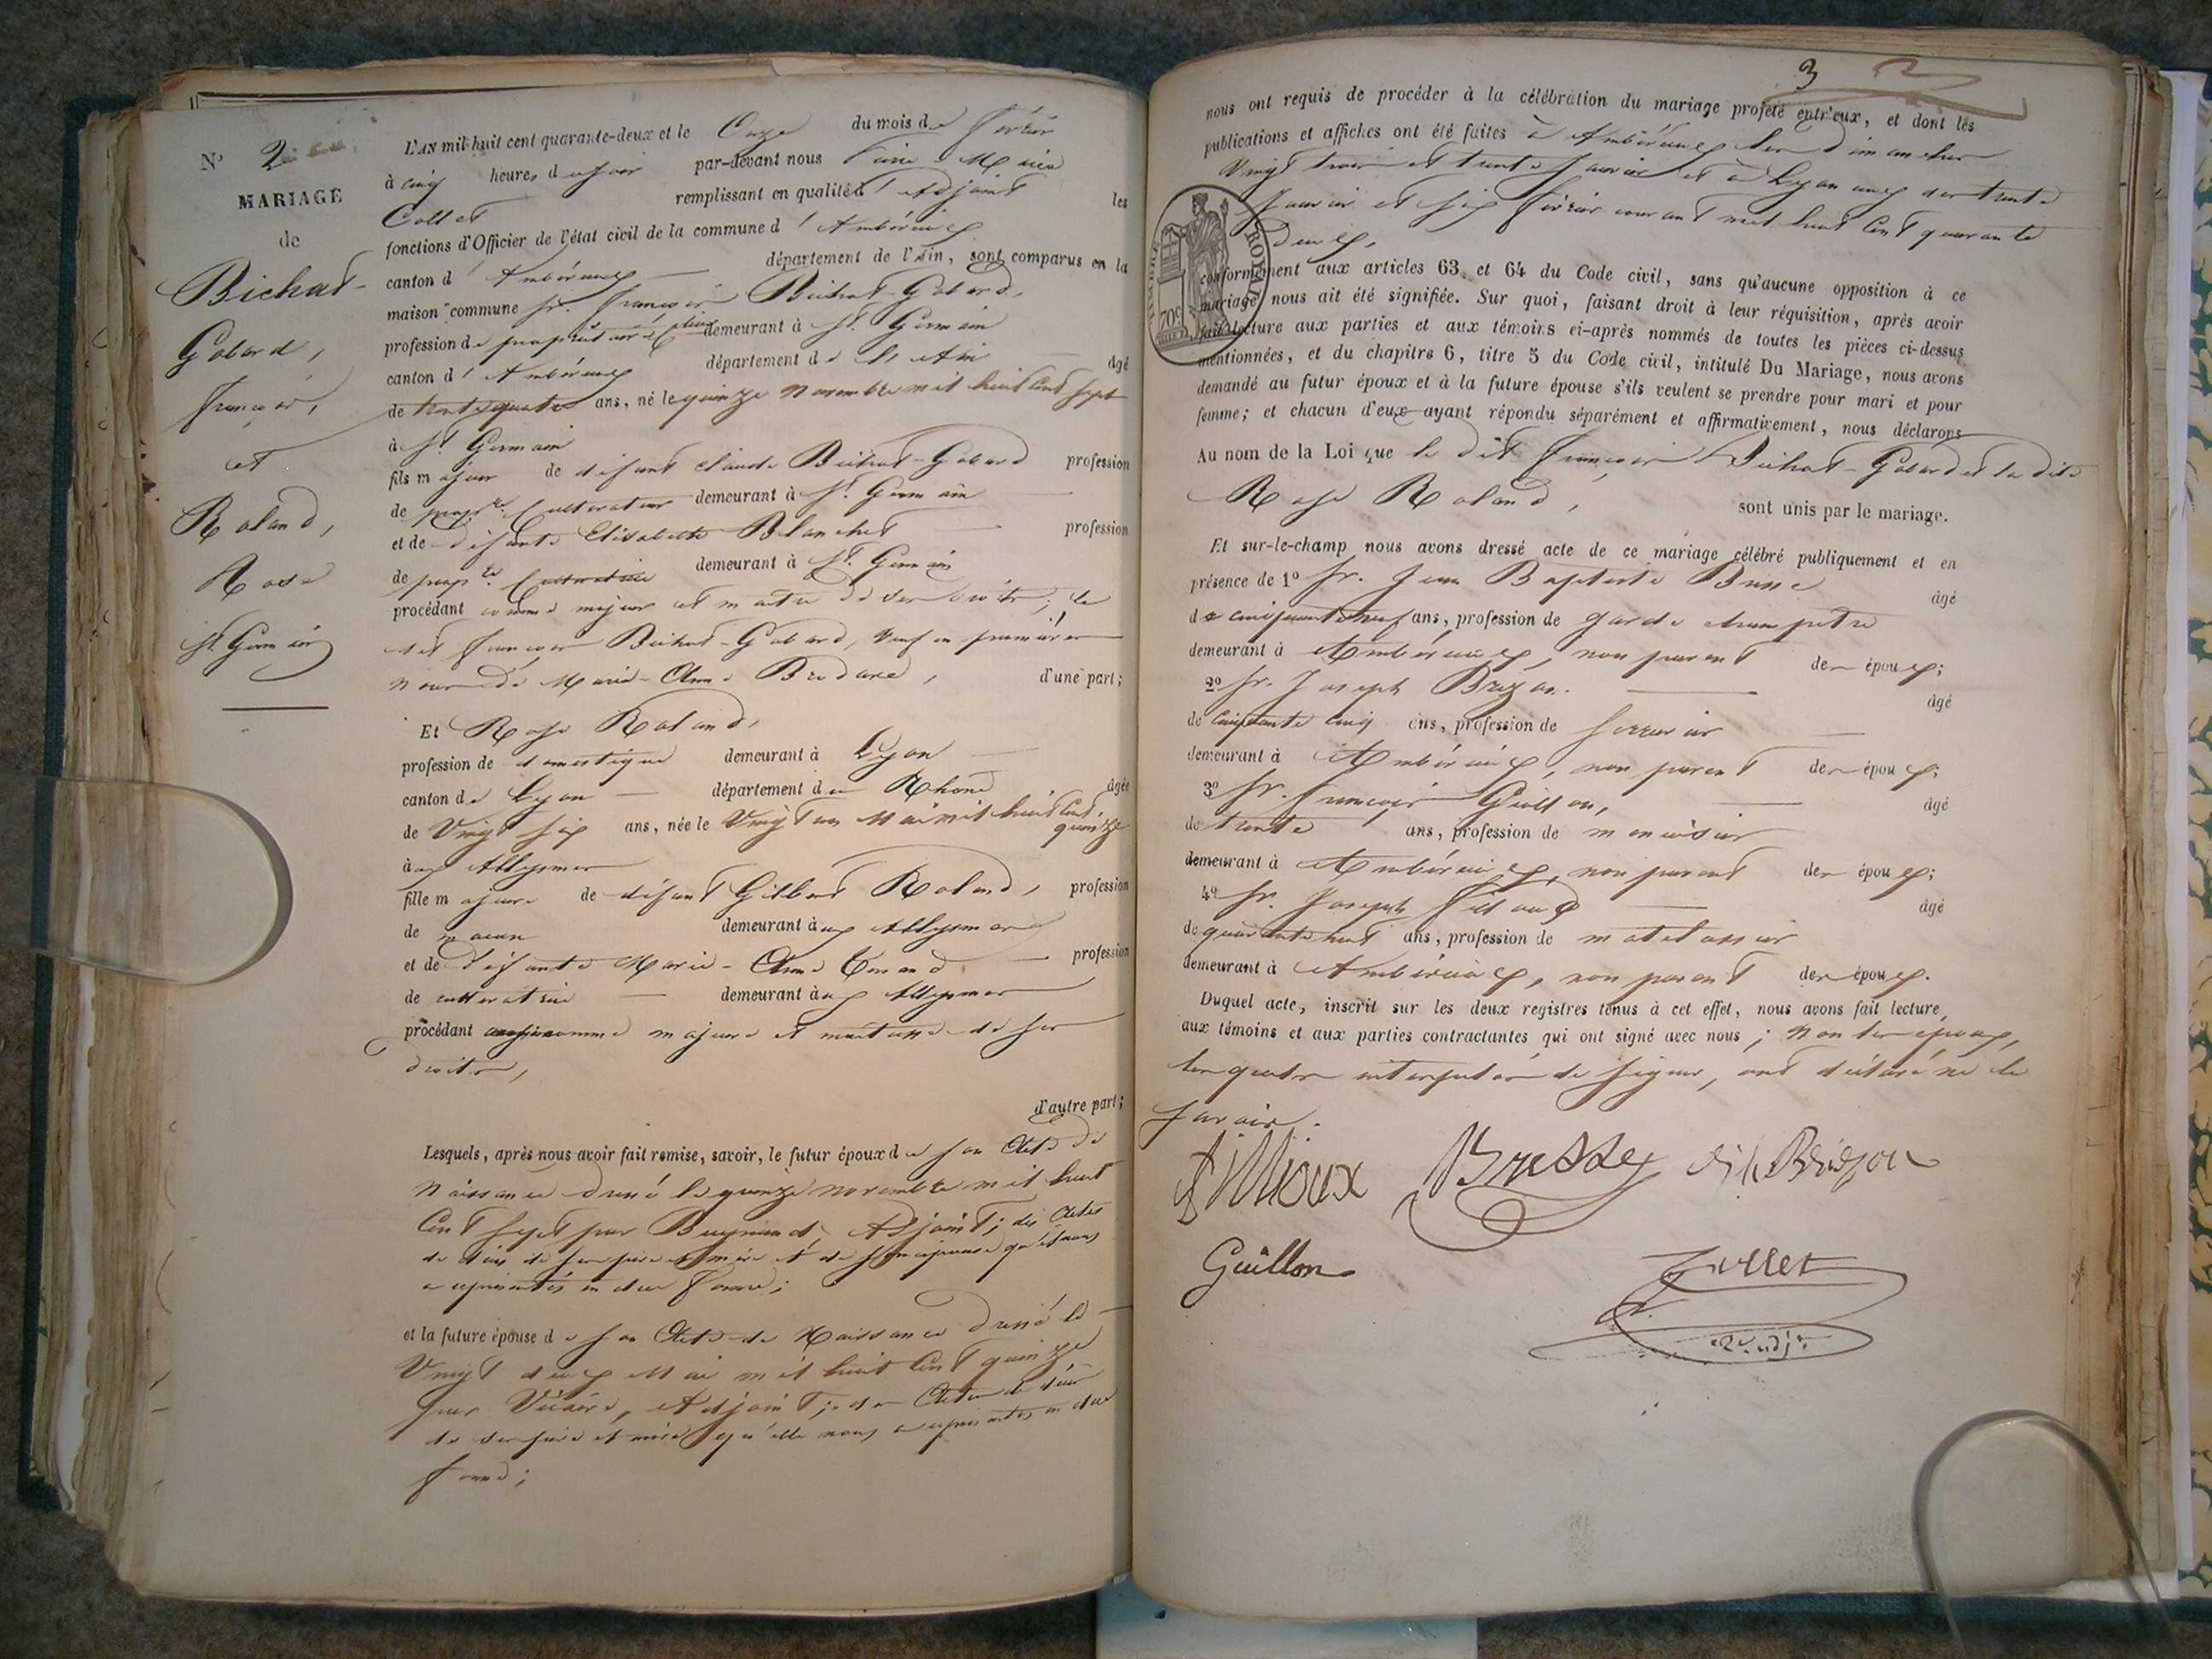 N° 2
MARIAGE
de
Bichat-
Gobard,
françois,
et
Roland,
Rose
St. Germain
L'AN mil huit cent quarante-deux et le Onze du mois de février
à cinq heures du soir par-devant nous Marie
Collet remplissant en qualité d'Adjoint les
fonctions d'Officier de l'état civil de la commune d'Ambérieux
canton d'Ambérieux département de l'Ain, sont comparus en la
maison commune Sr. françois Bichat-Gobard,
profession de propriétaire demeurant à St. Germain
canton d'Ambérieux département de l'Ain âgé
de trente quatre ans, né le quinze Novembre mil huit cent sept
à St. Germain
fils majeur de défunt Claude Bichat-Gobard profession
de propre. Cultivateur demeurant à St. Germain
et de défunte Elisabeth Blanchet profession
de propre. Cultivatrice demeurant à St. Germain
procédant comme majeur et maître de ses droits; le
dit françois Bichat-Gobard, Veuf en premières
noces de Marie-Anne d'une part;
Et Rose Roland,
profession de domestique demeurant à Lyon
canton de Lyon département du Rhône âgée
de Vingt six ans, née le Vingt un Mai mil huit cent quinze
aux Alleymes
fille majeure de défunt Gilbert Roland, profession
de maçon demeurant aux Alleymes
et de défunte Marie-Anne profession
de cultivatrice demeurant aux Alleymes
procédant comme majeure et maîtresse de ses
droits,
d'autre part;
Lesquels, après nous avoir fait remise, savoir, le futur époux de son Acte de
Naissance dressé le quinze novembre mil huit
Cent Sept par Adjoint; des Actes
de décès de ses père et mère et de son épouse qu'il nous
a représentés en due forme;
et la future épouse de son Acte de Naissance dressé le
Vingt deux Mai mil huit Cent quinze
par Adjoint; des Actes de décès
de ses père et mère qu'elle nous a représentés en due
forme;
3
nous ont requis de procéder à la célébration du mariage projeté entr'eux, et dont les
publications et affiches ont été faites à Ambérieux les dimanches
Vingt trois et trente Janvier et à Lyon aux dits trente
Janvier et six février courant mil huit Cent quarante
deux,
TIMBRE ROYAL
70c
conformément aux articles 63 et 64 du Code civil, sans qu'aucune opposition à ce
mariage nous ait été signifiée. Sur quoi, faisant droit à leur réquisition, après avoir
fait lecture aux parties et aux témoins ci-après nommés de toutes les pièces ci-dessus
mentionnées, et du chapitre 6, titre 5 du Code civil, intitulé Du Mariage, nous avons
demandé au futur époux et à la future épouse s'ils veulent se prendre pour mari et pour
femme; et chacun d'eux ayant répondu séparément et affirmativement, nous déclarons
Au nom de la Loi que le dit françois Bichat-Gobard et la dite
Rose Roland, sont unis par le mariage.
Et sur-le-champ nous avons dressé acte de ce mariage célébré publiquement et en
présence de 1° Sr. Jean Baptiste âgé
de cinquante neuf ans, profession de garde champêtre
demeurant à Ambérieux, non parent des époux;
2° Sr. Joseph âgé
de Cinquante cinq ans, profession de Serrurier
demeurant à Ambérieux, non parent des époux;
3° Sr. françois Guillon, âgé
de trente ans, profession de menuisier
demeurant à Ambérieux, non parent des époux;
4° Sr. Joseph âgé
de quarante huit ans, profession de matelassier
demeurant à Ambérieux, non parent des époux.
Duquel acte, inscrit sur les deux registres tenus à cet effet, nous avons fait lecture
aux témoins et aux parties contractantes qui ont signé avec nous; Non les époux,
lesquels interpelés de signer, ont déclaré ne le
savoir.
Guillon